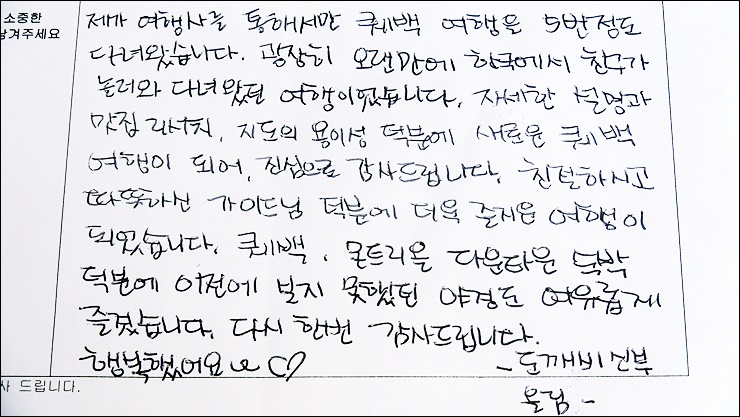 소중한
남겨주세요
제가 여행사를 통해서만 퀘백 여행을 5번정도
다녀왔습니다. 굉장히 오랜만에 한국에서 친구가
놀러와 다녀왔던 여행이었습니다. 자세한 설명과
맛집 리서치, 지도의 용이성 덕분에 새로운 퀘백
여행이 되어, 진심으로 감사드립니다. 친절하시고
따뜻하신 가이드님 덕분에 더욱 즐거운 여행이
되었습니다. 퀘백, 몬트리올 다운타운 숙박
덕분에 이전에 보지 못했던 야경도 여유롭게
즐겼습니다. 다시 한번 감사드립니다.
행복했어요 ♡
- 도깨비신부
올림 -
사 드립니다.